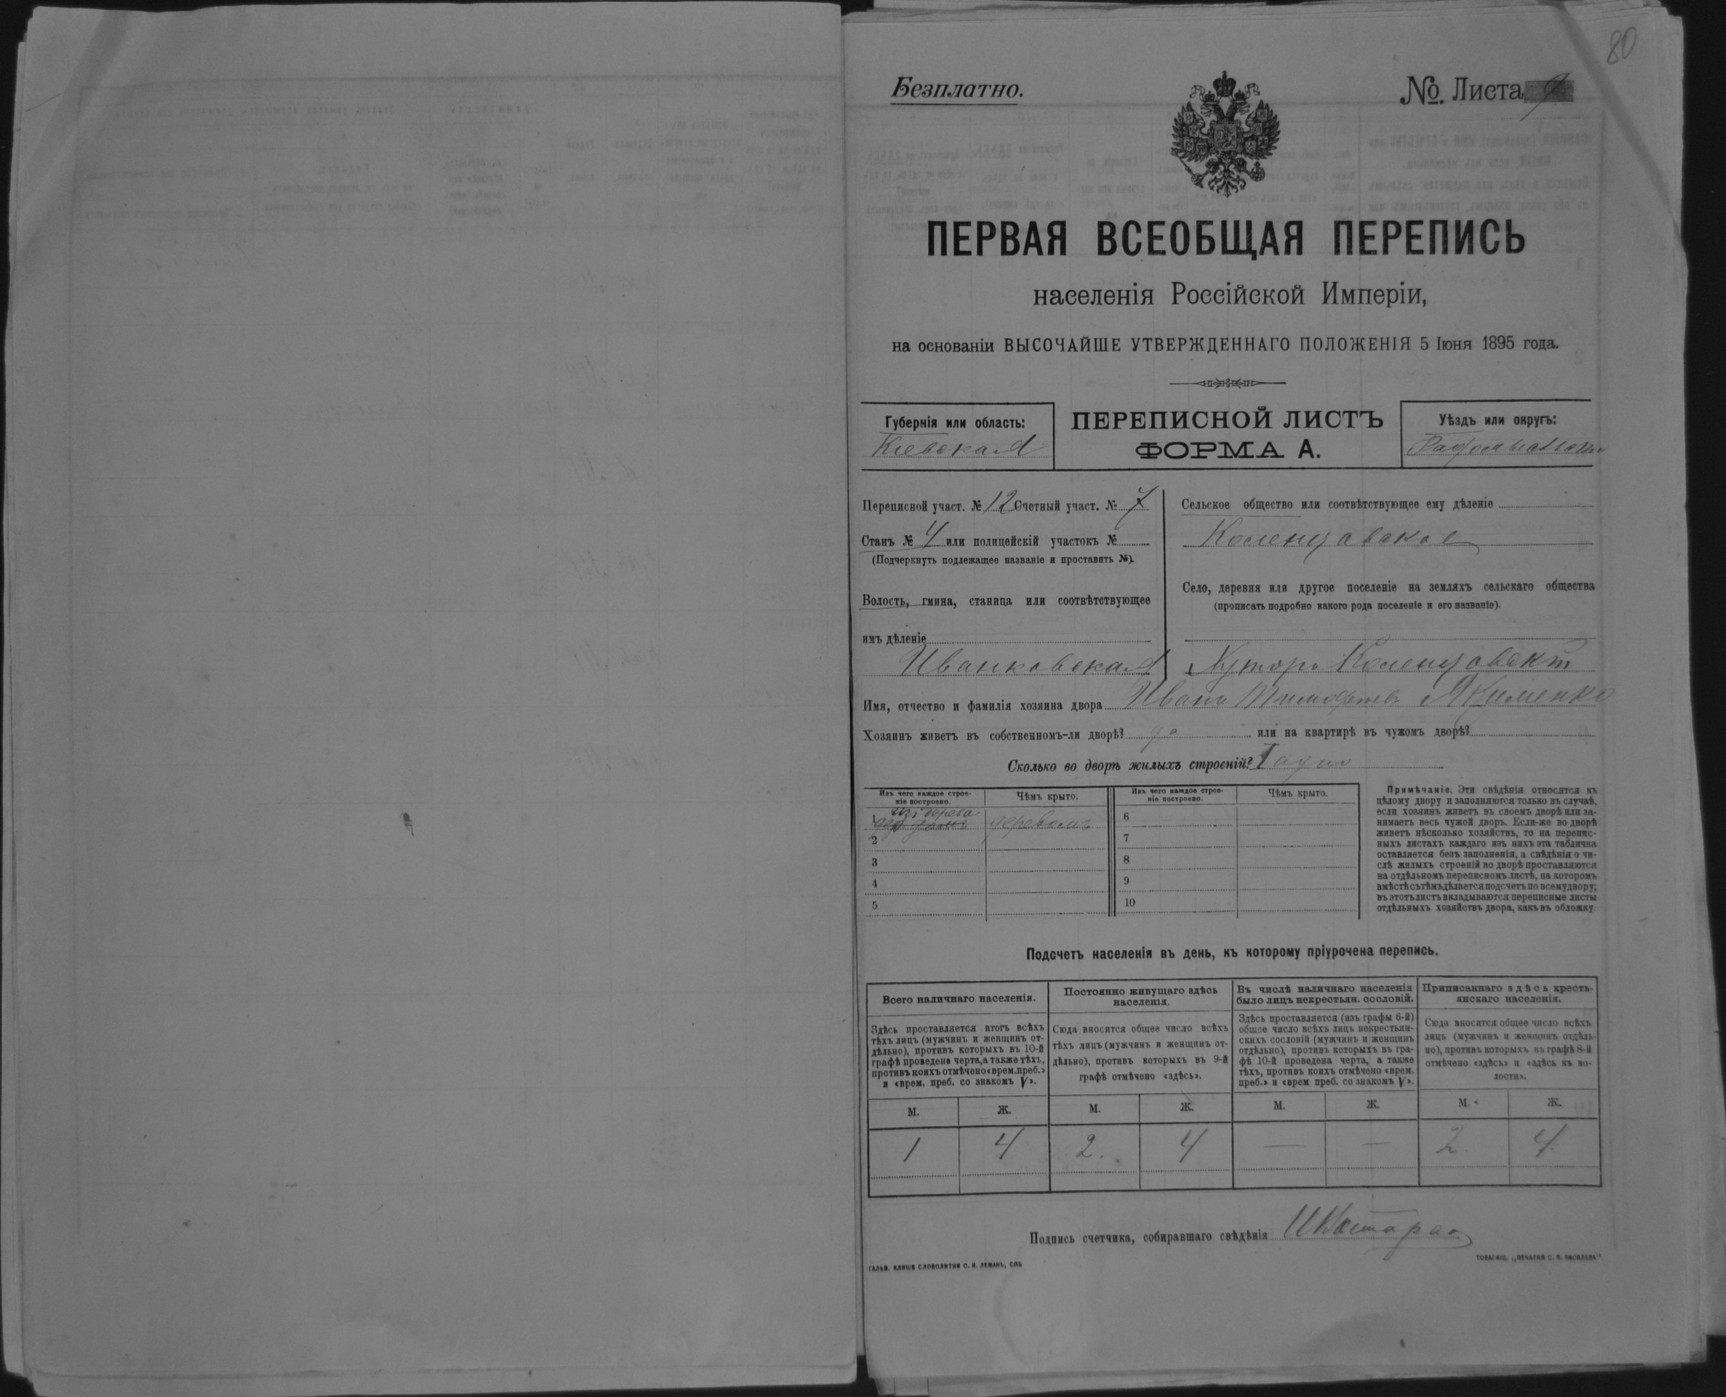 80
Безплатно.
№ Листа 9
ПЕРВАЯ ВСЕОБЩАЯ ПЕРЕПИСЬ
населенія Россійской Имперіи,
на основаніи ВЫСОЧАЙШЕ УТВЕРЖДЕННАГО ПОЛОЖЕНІЯ 5 Іюня 1895 года.
Губернія или область:
Кіевская
ПЕРЕПИСНОЙ ЛИСТЪ
ФОРМА А.
Уѣздъ или округъ:
Переписной участ. № 12 Счетный участ. № 7
Станъ № 4 или полицейскій участокъ №
(Подчеркнуть подлежащее названіе и проставить №).
Волость, гмина, станица или соотвѣтствующее
имъ дѣленіе
Иванковская
Сельское общество или соотвѣтствующее ему дѣленіе
Коленцовское
Село, деревня или другое поселеніе на земляхъ сельскаго общества
(прописать подробно какого рода поселеніе и его названіе).
Хуторъ Коленцовскій
Имя, отчество и фамилія хозяина двора Иванъ Тимофеевъ Якименко
Хозяинъ живетъ въ собственномъ-ли дворѣ? да или на квартирѣ въ чужомъ дворѣ?
Сколько во дворѣ жилыхъ строеній?
Изъ чего каждое строе-
ніе построено.
Чѣмъ крыто.
Изъ чего каждое строе-
ніе построено.
Чѣмъ крыто.
1 изъ дерева деревомъ
2
3
4
5
6
7
8
9
10
Примѣчаніе. Эти свѣдѣнія относятся къ
цѣлому двору и заполняются только въ случаѣ,
если хозяинъ живетъ въ своемъ дворѣ или за-
нимаетъ весь чужой дворъ. Если-же во дворѣ
живетъ нѣсколько хозяйствъ, то на перепис-
ныхъ листахъ каждаго изъ нихъ эта табличка
оставляется безъ заполненія, а свѣдѣнія о чи-
слѣ жилыхъ строеній во дворѣ проставляются
на отдѣльномъ переписномъ листѣ, на которомъ
вмѣстѣ съ тѣмъ дѣлается подсчетъ по всему двору;
въ этотъ листъ вкладываются переписные листы
отдѣльныхъ хозяйствъ двора, какъ въ обложку
Подсчетъ населенія въ день, къ которому пріурочена перепись.
Всего наличнаго населенія.
Здѣсь проставляется итогъ всѣхъ
тѣхъ лицъ (мужчинъ и женщинъ от-
дѣльно), противъ которыхъ въ 10-й
графѣ проведена черта, а также тѣхъ,
противъ коихъ отмѣчено «врем. преб.»
и «врем. преб. со знакомъ V».
Постоянно живущаго здѣсь
населенія.
Сюда вносится общее число всѣхъ
тѣхъ лицъ (мужчинъ и женщинъ от-
дѣльно), противъ которыхъ въ 9-й
графѣ отмѣчено «здѣсь».
Въ числѣ наличнаго населенія
было лицъ некрестьян. сословій.
Здѣсь проставляется (изъ графы 6-й)
общее число всѣхъ лицъ некрестьян-
скихъ сословій (мужчинъ и женщинъ
отдѣльно), противъ которыхъ въ гра-
фѣ 10-й проведена черта, а также
тѣхъ, противъ коихъ отмѣчено «врем.
преб.» и «врем преб. со знакомъ V».
Приписаннаго здѣсь кресть-
янскаго населенія.
Сюда вносится общее число всѣхъ
лицъ (мужчинъ и женщинъ отдѣль-
но), противъ которыхъ въ графѣ 8-й
отмѣчено «здѣсь» и «здѣсь къ во-
лости».
М. Ж. М. Ж. М. Ж. М. Ж.
1 4 2. 4 — — 2. 4.
Подпись счетчика, собиравшаго свѣдѣнія
ГАЛЬВ. КЛИШЕ СЛОВОЛИТНИ О. И. ЛЕМАНЪ, СПБ
ТОВАРИЩ. „ПЕЧАТНЯ С. П. ЯКОВЛЕВА".